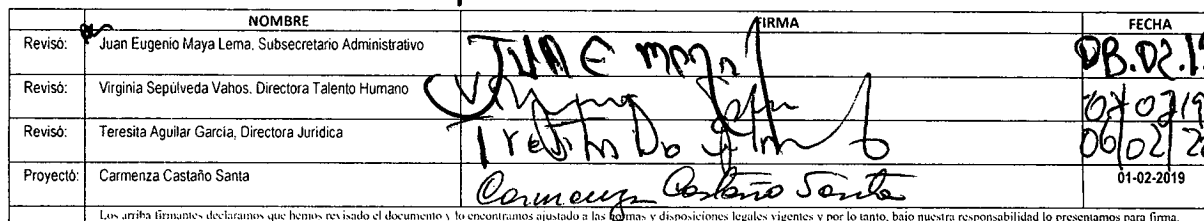 NOMBRE FIRMA FECHA
Revisó: Juan Eugenio Maya Lema, Subsecretario Administrativo JUAN E MAYA 08.02.19
Revisó: Virginia Sepúlveda Vahos. Directora Talento Humano
Revisó: Teresita Aguilar Garcia, Directora Jurídica 06/02/2
Proyectó: Carmenza Castaño Santa Carmenza Castaño Santa 01-02-2019
Los arriba firmantes declaramos que hemos revisado el documento y lo encontramos ajustado a las normas y disposiciones legales vigentes y por lo tanto, bajo nuestra responsabilidad lo presentamos para firma.